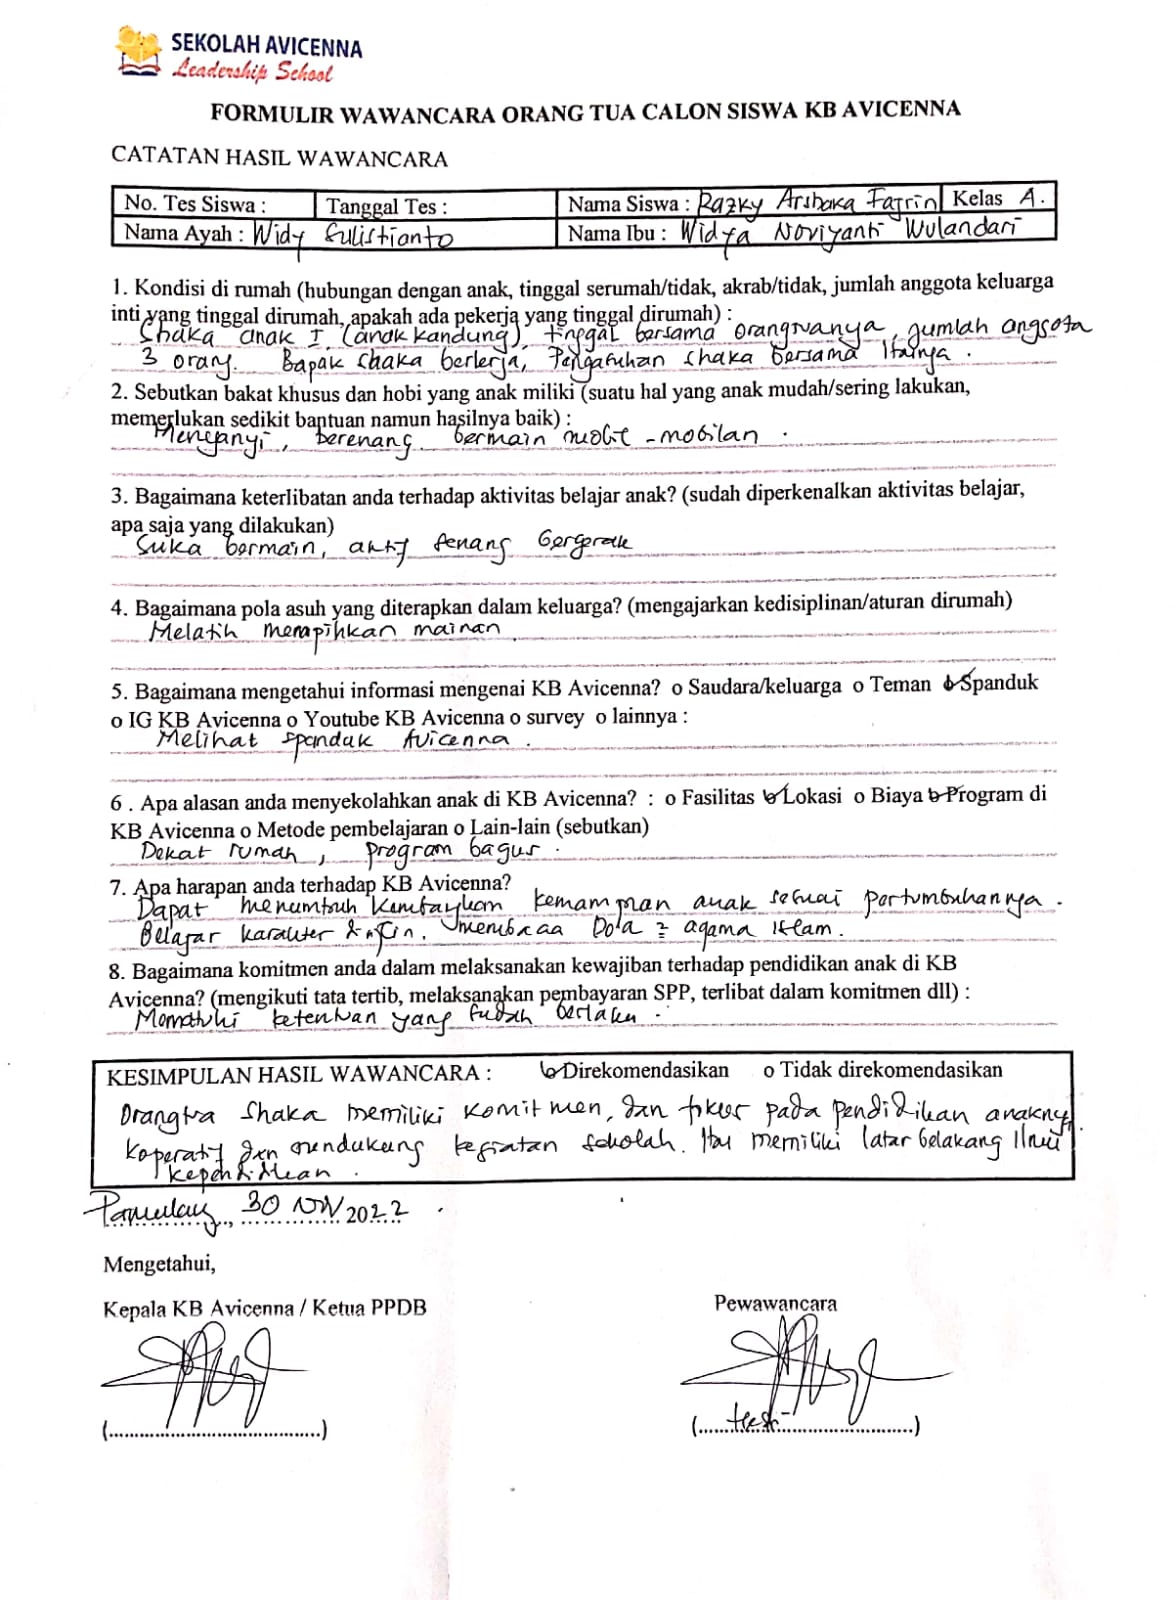 SEKOLAH AVICENNA
Leadership School
FORMULIR WAWANCARA ORANG TUA CALON SISWA KB AVICENNA
CATATAN HASIL WAWANCARA
No. Tes Siswa : Tanggal Tes : Nama Siswa : Razky Arshaka Fajrin Kelas A.
Nama Ayah : Widy Sulistianto Nama Ibu : Widya Noviyanti Wulandari
1. Kondisi di rumah (hubungan dengan anak, tinggal serumah/tidak, akrab/tidak, jumlah anggota keluarga
inti yang tinggal dirumah, apakah ada pekerja yang tinggal dirumah) :
Shaka anak I (anak kandung), tinggal bersama orangtuanya, jumlah anggota
3 orang. Bapak shaka berkerja, Pengasuhan shaka bersama Ibunya.
2. Sebutkan bakat khusus dan hobi yang anak miliki (suatu hal yang anak mudah/sering lakukan,
memerlukan sedikit bantuan namun hasilnya baik) :
Menyanyi, berenang, bermain mobil-mobilan.
3. Bagaimana keterlibatan anda terhadap aktivitas belajar anak? (sudah diperkenalkan aktivitas belajar,
apa saja yang dilakukan)
Suka bermain, aktif senang bergerak
4. Bagaimana pola asuh yang diterapkan dalam keluarga? (mengajarkan kedisiplinan/aturan dirumah)
Melatih merapihkan mainan
5. Bagaimana mengetahui informasi mengenai KB Avicenna? o Saudara/keluarga o Teman o Spanduk
o IG KB Avicenna o Youtube KB Avicenna o survey o lainnya :
Melihat spanduk Avicenna.
6 . Apa alasan anda menyekolahkan anak di KB Avicenna? : o Fasilitas o Lokasi o Biaya o Program di
KB Avicenna o Metode pembelajaran o Lain-lain (sebutkan)
Dekat rumah, program bagus.
7. Apa harapan anda terhadap KB Avicenna?
Dapat menumbuh kembangkan kemampuan anak sesuai pertumbuhannya.
Belajar karakter disiplin, membaca Do'a 2 agama Islam.
8. Bagaimana komitmen anda dalam melaksanakan kewajiban terhadap pendidikan anak di KB
Avicenna? (mengikuti tata tertib, melaksanakan pembayaran SPP, terlibat dalam komitmen dll) :
Mematuhi ketentuan yang sudah berlaku.
KESIMPULAN HASIL WAWANCARA : o Direkomendasikan o Tidak direkomendasikan
Orangtua Shaka memiliki komitmen, dan fokus pada pendidikan anaknya,
koperatif dan mendukung kegiatan sekolah. Ibu memiliki latar belakang Ilmu
kependidikan.
Pamulang, 30 Nov 2022
Mengetahui,
Kepala KB Avicenna / Ketua PPDB Pewawancara